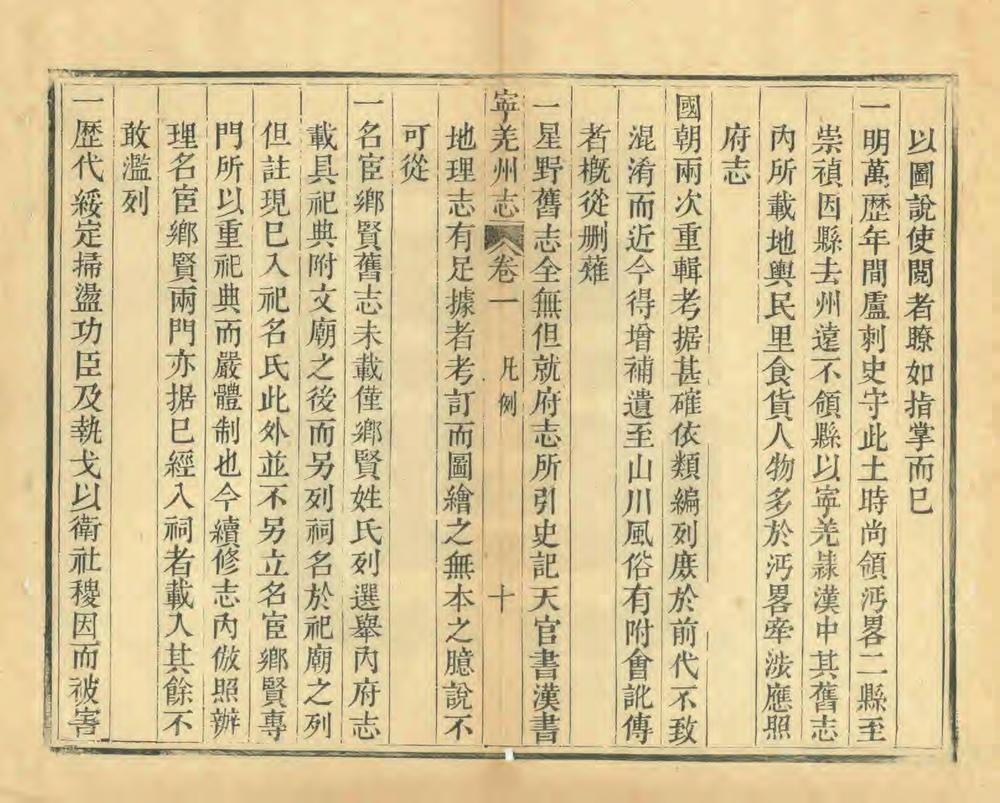 以圖說使閱者瞭如指掌而已
一明萬歷年間盧刺史守此土時尚領沔畧二縣至
崇禎因縣去州遠不領縣以寧羌隸漢中其舊志
內所載地輿民里食貨人物多於沔畧牽涉應照
府志
國朝兩次重輯考据甚確依類編列庶於前代不致
混淆而近今得增補遺至山川風俗有附會訛傳
者概從删薙
一星野舊志全無但就府志所引史記天官書漢書
寧羌州志 卷一 凡例 十
地理志有足據者考訂而圖繪之無本之臆說不
可從
一名宦鄉賢舊志未載僅鄉賢姓氏列選舉內府志
載具祀典附文廟之後而另列祠名於祀廟之列
但註現已入祀名氏此外並不另立名宦鄉賢專
門所以重祀典而嚴體制也今續修志內倣照辦
理名宦鄉賢兩門亦据已經入祠者載入其餘不
敢濫列
一歷代綏定掃盪功臣及執戈以衛社稷因而被害